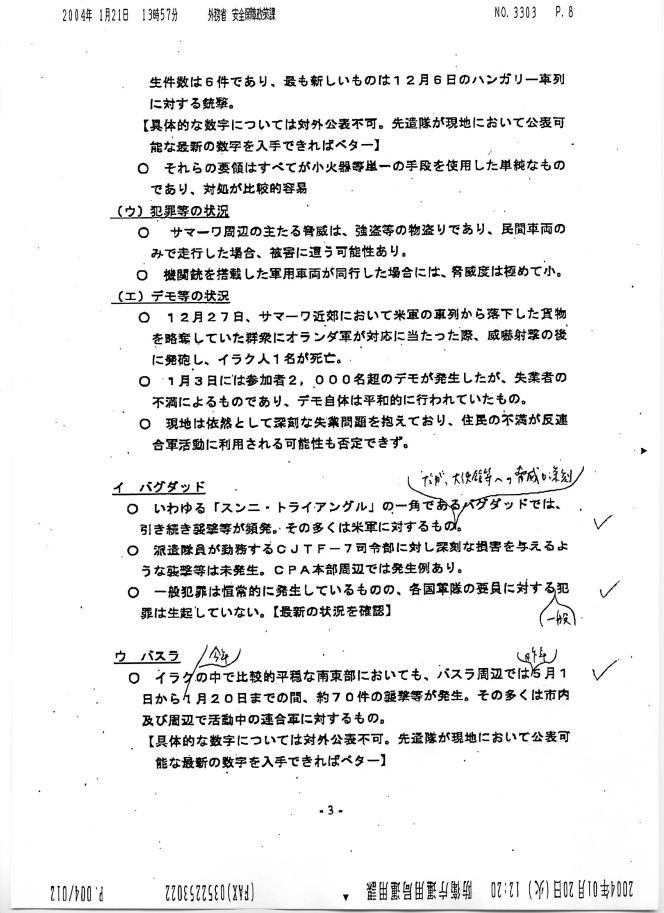 2004年 1月21日 13時57分 外務省 安全保障政策課 NO.3303 P.8
生件数は6件であり、最も新しいものは12月6日のハンガリー車列
に対する銃撃。
【具体的な数字については対外公表不可。先遣隊が現地において公表可
能な最新の数字を入手できればベター】
○ それらの要領はすべてが小火器等単一の手段を使用した単純なもの
であり、対処が比較的容易
(ウ)犯罪等の状況
○ サマーワ周辺の主たる脅威は、強盗等の物盗りであり、民間車両の
みで走行した場合、被害に遭う可能性あり。
○ 機関銃を搭載した軍用車両が同行した場合には、脅威度は極めて小。
(エ)デモ等の状況
○ 12月27日、サマーワ近郊において米軍の車列から落下した貨物
を略奪していた群衆にオランダ軍が対応に当たった際、威嚇射撃の後
に発砲し、イラク人1名が死亡。
○ 1月3日には参加者2,000名超のデモが発生したが、失業者の
不満によるものであり、デモ自体は平和的に行われていたもの。
○ 現地は依然として深刻な失業問題を抱えており、住民の不満が反連
合軍活動に利用される可能性も否定できず。
だが、大使館等への脅威は深刻
イ バグダッド
○ いわゆる「スンニ・トライアングル」の一角であるバグダッドでは、
引き続き襲撃等が頻発。その多くは米軍に対するもの。
○ 派遣隊員が勤務するCJTF-7司令部に対し深刻な損害を与えるよ
うな襲撃等は未発生。CPA本部周辺では発生例あり。
○ 一般犯罪は恒常的に発生しているものの、各国軍隊の要員に対する犯
罪は生起していない。【最新の状況を確認】
一般
ウ バスラ
今年 昨年
○ イラクの中で比較的平穏な南東部においても、バスラ周辺では5月1
日から1月20日までの間、約70件の襲撃等が発生。その多くは市内
及び周辺で活動中の連合軍に対するもの。
【具体的な数字については対外公表不可。先遣隊が現地において公表可
能な最新の数字を入手できればベター】
-3-
2004年01月20日(火) 12:20 防衛庁運用局運用課 (FAX)0352253022 P.004/012